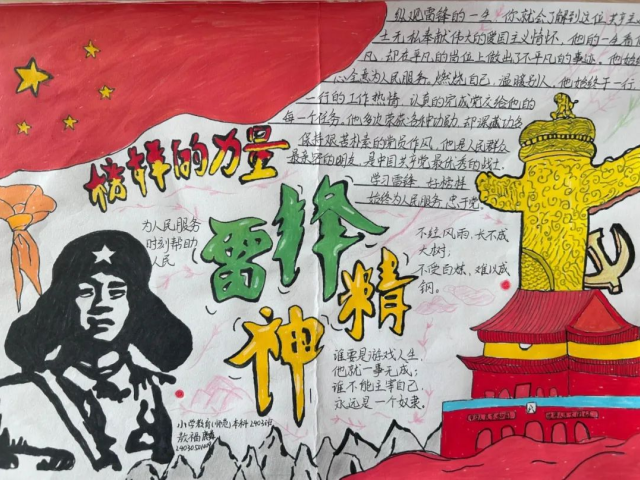 纵观雷锋的一生，你就会了解到这位共产主
士无私奉献伟大的爱国主义情怀，他的一生看似
凡，却在平凡的岗位上做出了不平凡的事迹，他始终
心全意为人民服务，燃烧自己，温暖别人，他始终干一行
行的工作热情，认真的完成党交给他的
每一个任务，他多次荣获各种功勋，却深藏功名
保持艰苦朴素的党员作风，他是人民群众
最亲密的朋友，是中国共产党最优秀的战士，
学习雷锋 好榜样
始终为人民服务，忠于党
榜样的力量
为人民服务
时刻帮助
人民
雷锋
精
神
不经风雨，长不成
大树；
不受百炼，难以成
钢。
谁要是游戏人生，
他就一事无成；
谁不能主宰自己，
永远是一个奴隶。
小学教育(师范)本科